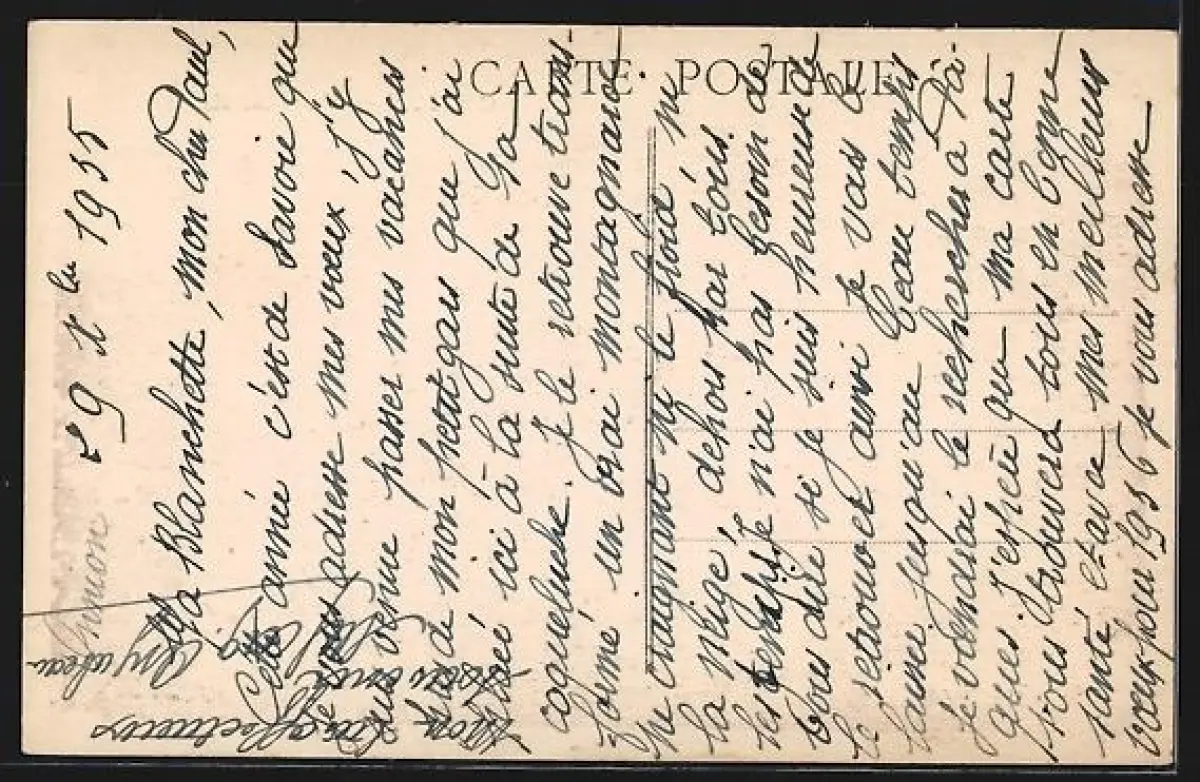 CARTE POSTALE
29 Xbre 1955
Ma Blanchette, mon cher Paul,
Cette année c'est de Savoie que
je vous adresse mes vœux, j'y
suis venue passer mes vacances
de mon petit gas que j'ai
placé ici à la suite de sa
coqueluche. Je le retrouve trans-
formé en vrai montagnard
ne craignant ni le froid ni
la neige, dehors par tous
les temps. Je n'ai pas besoin de
vous dire si je suis heureuse de
le retrouver ainsi. Je vais le
laisser jusqu'au beau temps
je viendrai le rechercher à Pâ-
ques. J'espère que ma carte
vous trouvera tous en bonne
santé et avec mes meilleurs
vœux pour 1956 je vous adresse
mon
affectueux